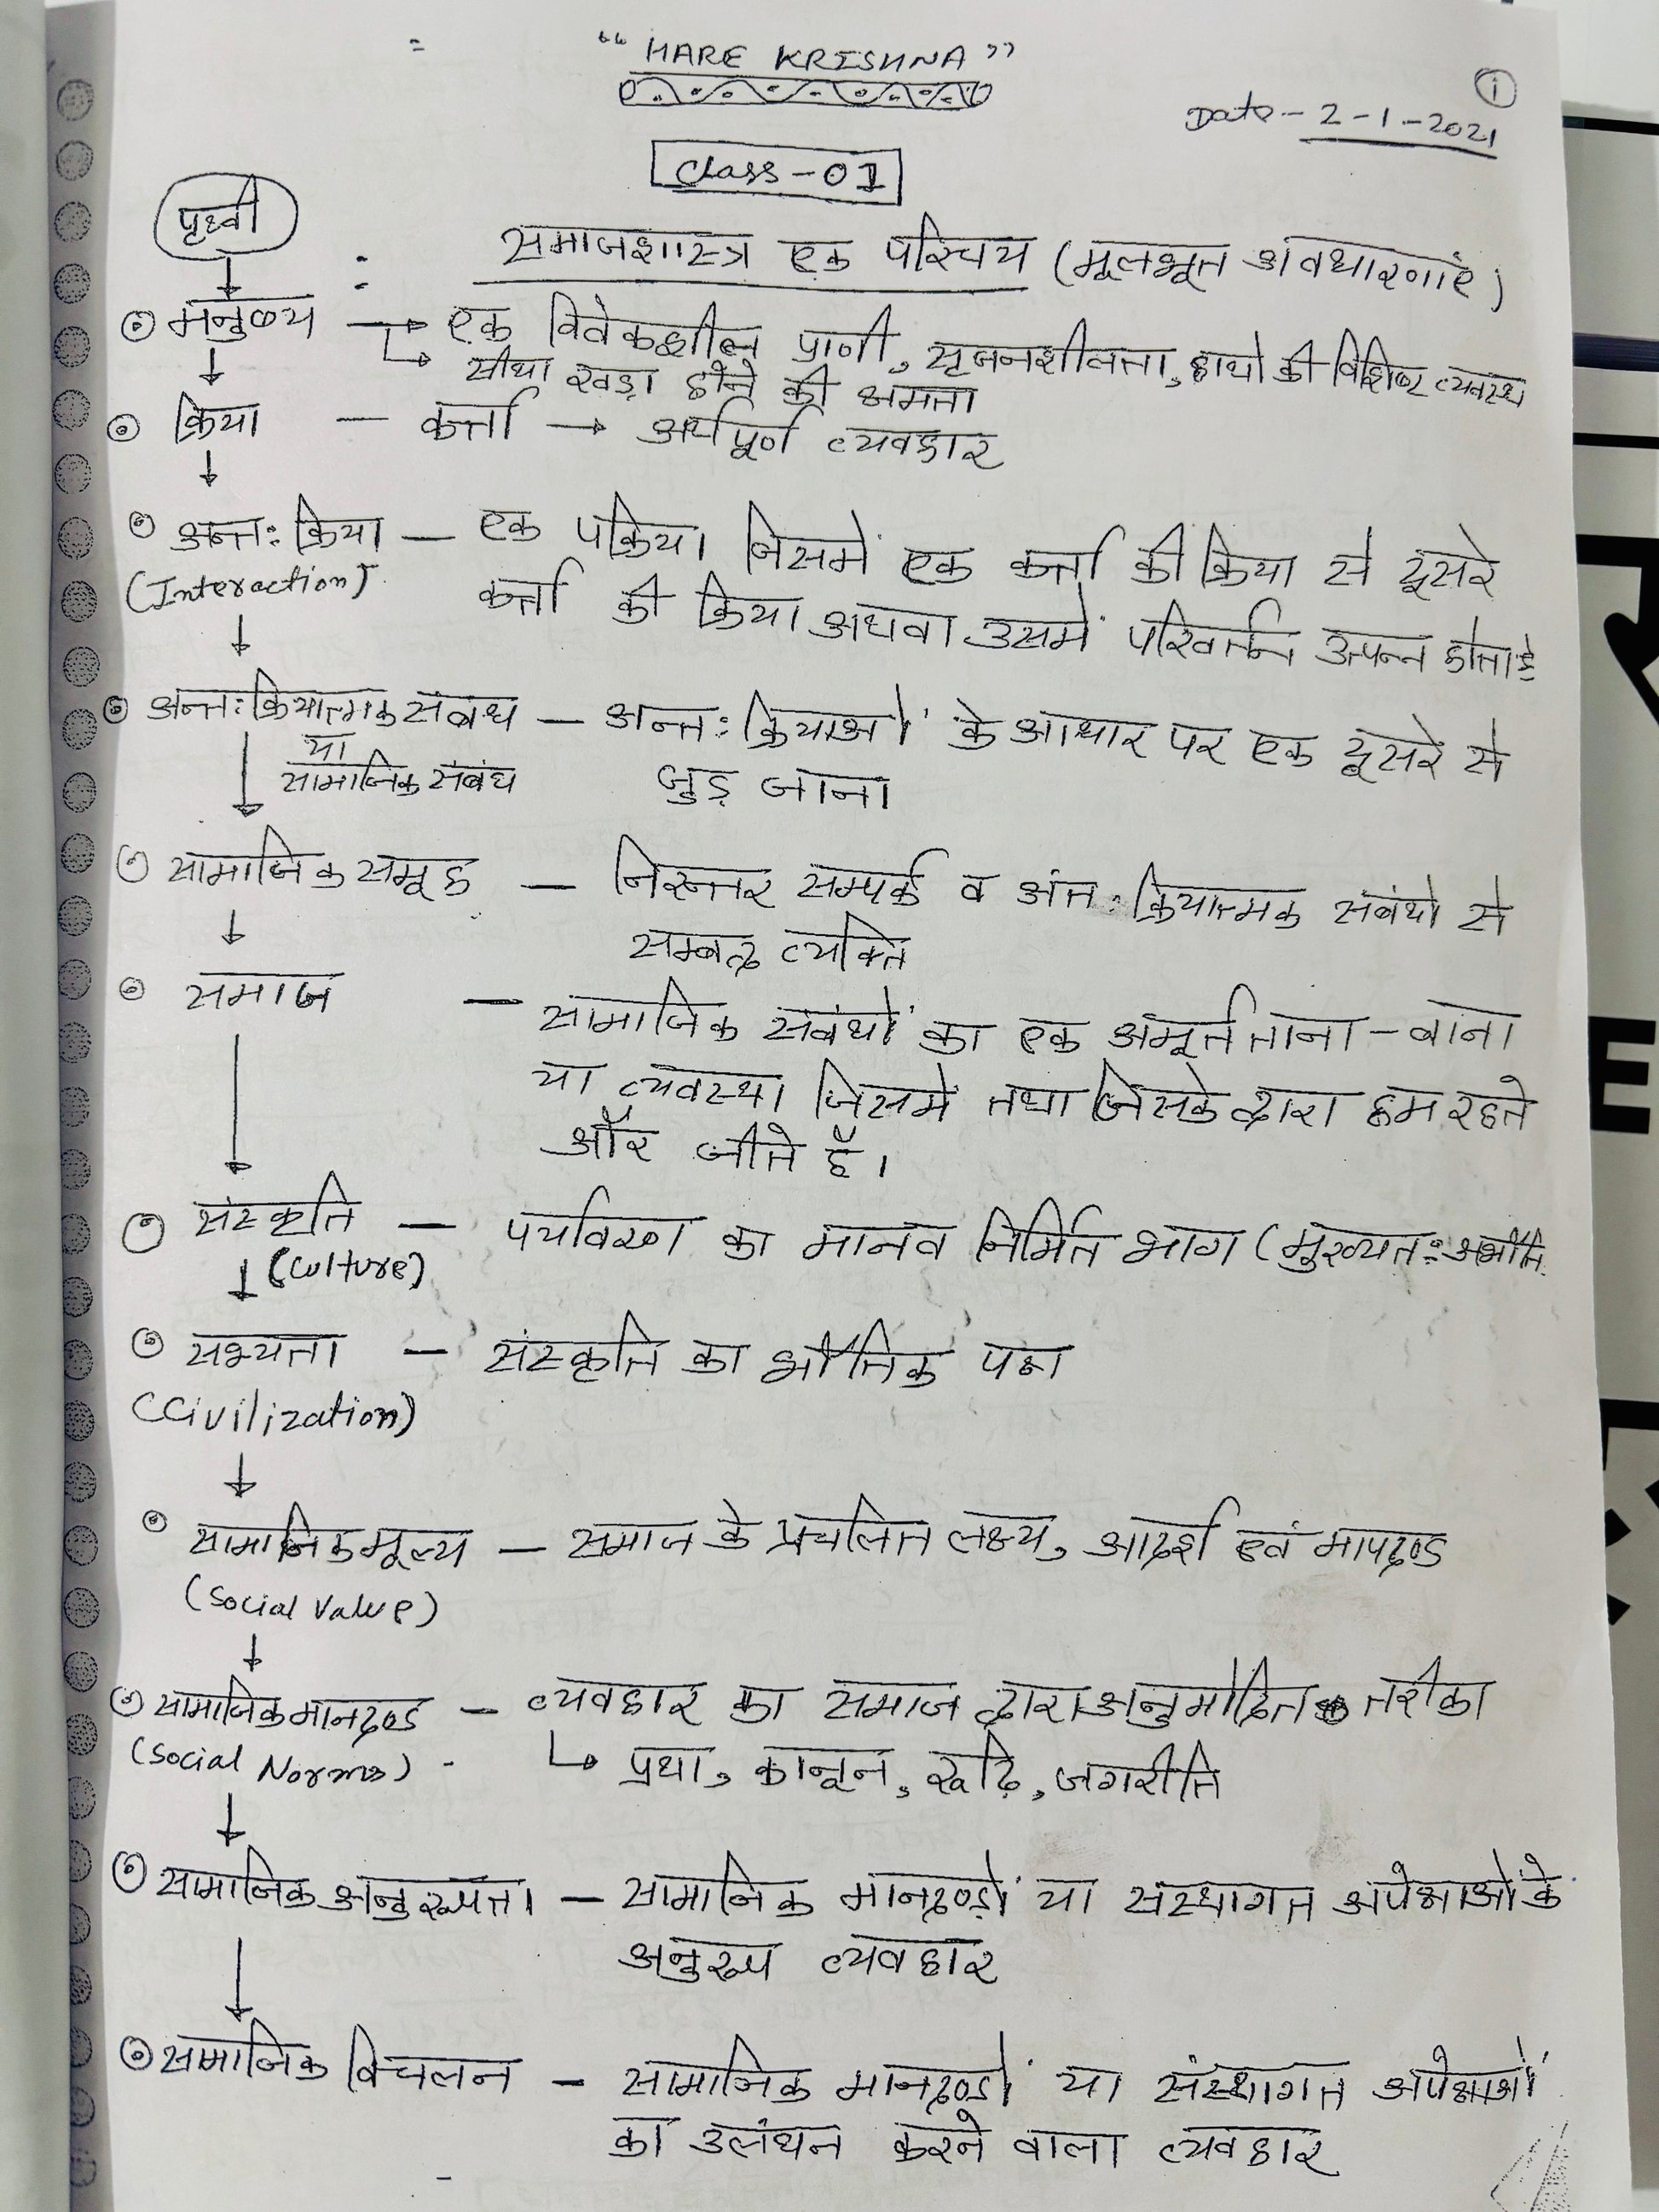 "HARE KRISHNA"
1
Date - 2-1-2021
Class-01
पृथ्वी
समाजशास्त्र एक परिचय (मूलभूत अवधारणाएं)
मनुष्य → एक विवेकशील प्राणी, सृजनशीलता, हाथो की विशिष्ट व्यवस्था
सीधा खड़ा होने की क्षमता
क्रिया - कर्त्ता → अर्थपूर्ण व्यवहार
अन्तः क्रिया - एक पक्रिया जिसमें एक कर्त्ता की क्रिया से दूसरे
(Interaction) कर्त्ता की क्रिया अथवा उसमें परिवर्तन उत्पन्न होता है
अन्तः क्रियात्मक संबंध - अन्तः क्रियाओं के आधार पर एक दूसरे से
या
सामाजिक संबंध जुड़ जाना
सामाजिक समूह - निरन्तर सम्पर्क व अंतः क्रियात्मक संबंधो से
सम्बद्ध व्यक्ति
समाज - सामाजिक संबंधों का एक अमूर्त ताना-बाना
या व्यवस्था जिसमें तथा जिसके द्वारा हम रहते
और जीते हैं।
संस्कृति - पर्यावरण का मानव निर्मित भाग (मुख्यतः अभौति
(Culture)
सभ्यता - संस्कृति का भौतिक पक्ष
(Civilization)
सामाजिक मूल्य - समाज के प्रचलित लक्ष्य, आदर्श एवं मापदण्ड
(Social Value)
सामाजिक मानदण्ड - व्यवहार का समाज द्वारा अनुमोदित तरीका
(Social Norms) ↳ प्रथा, कानून, रूढ़ि, जनरीति
सामाजिक अनुरूपता - सामाजिक मानदण्डों या संस्थागत अपेक्षाओं के
अनुरूप व्यवहार
सामाजिक विचलन - सामाजिक मानदण्डों या संस्थागत अपेक्षाओं
का उलंघन करने वाला व्यवहार
E